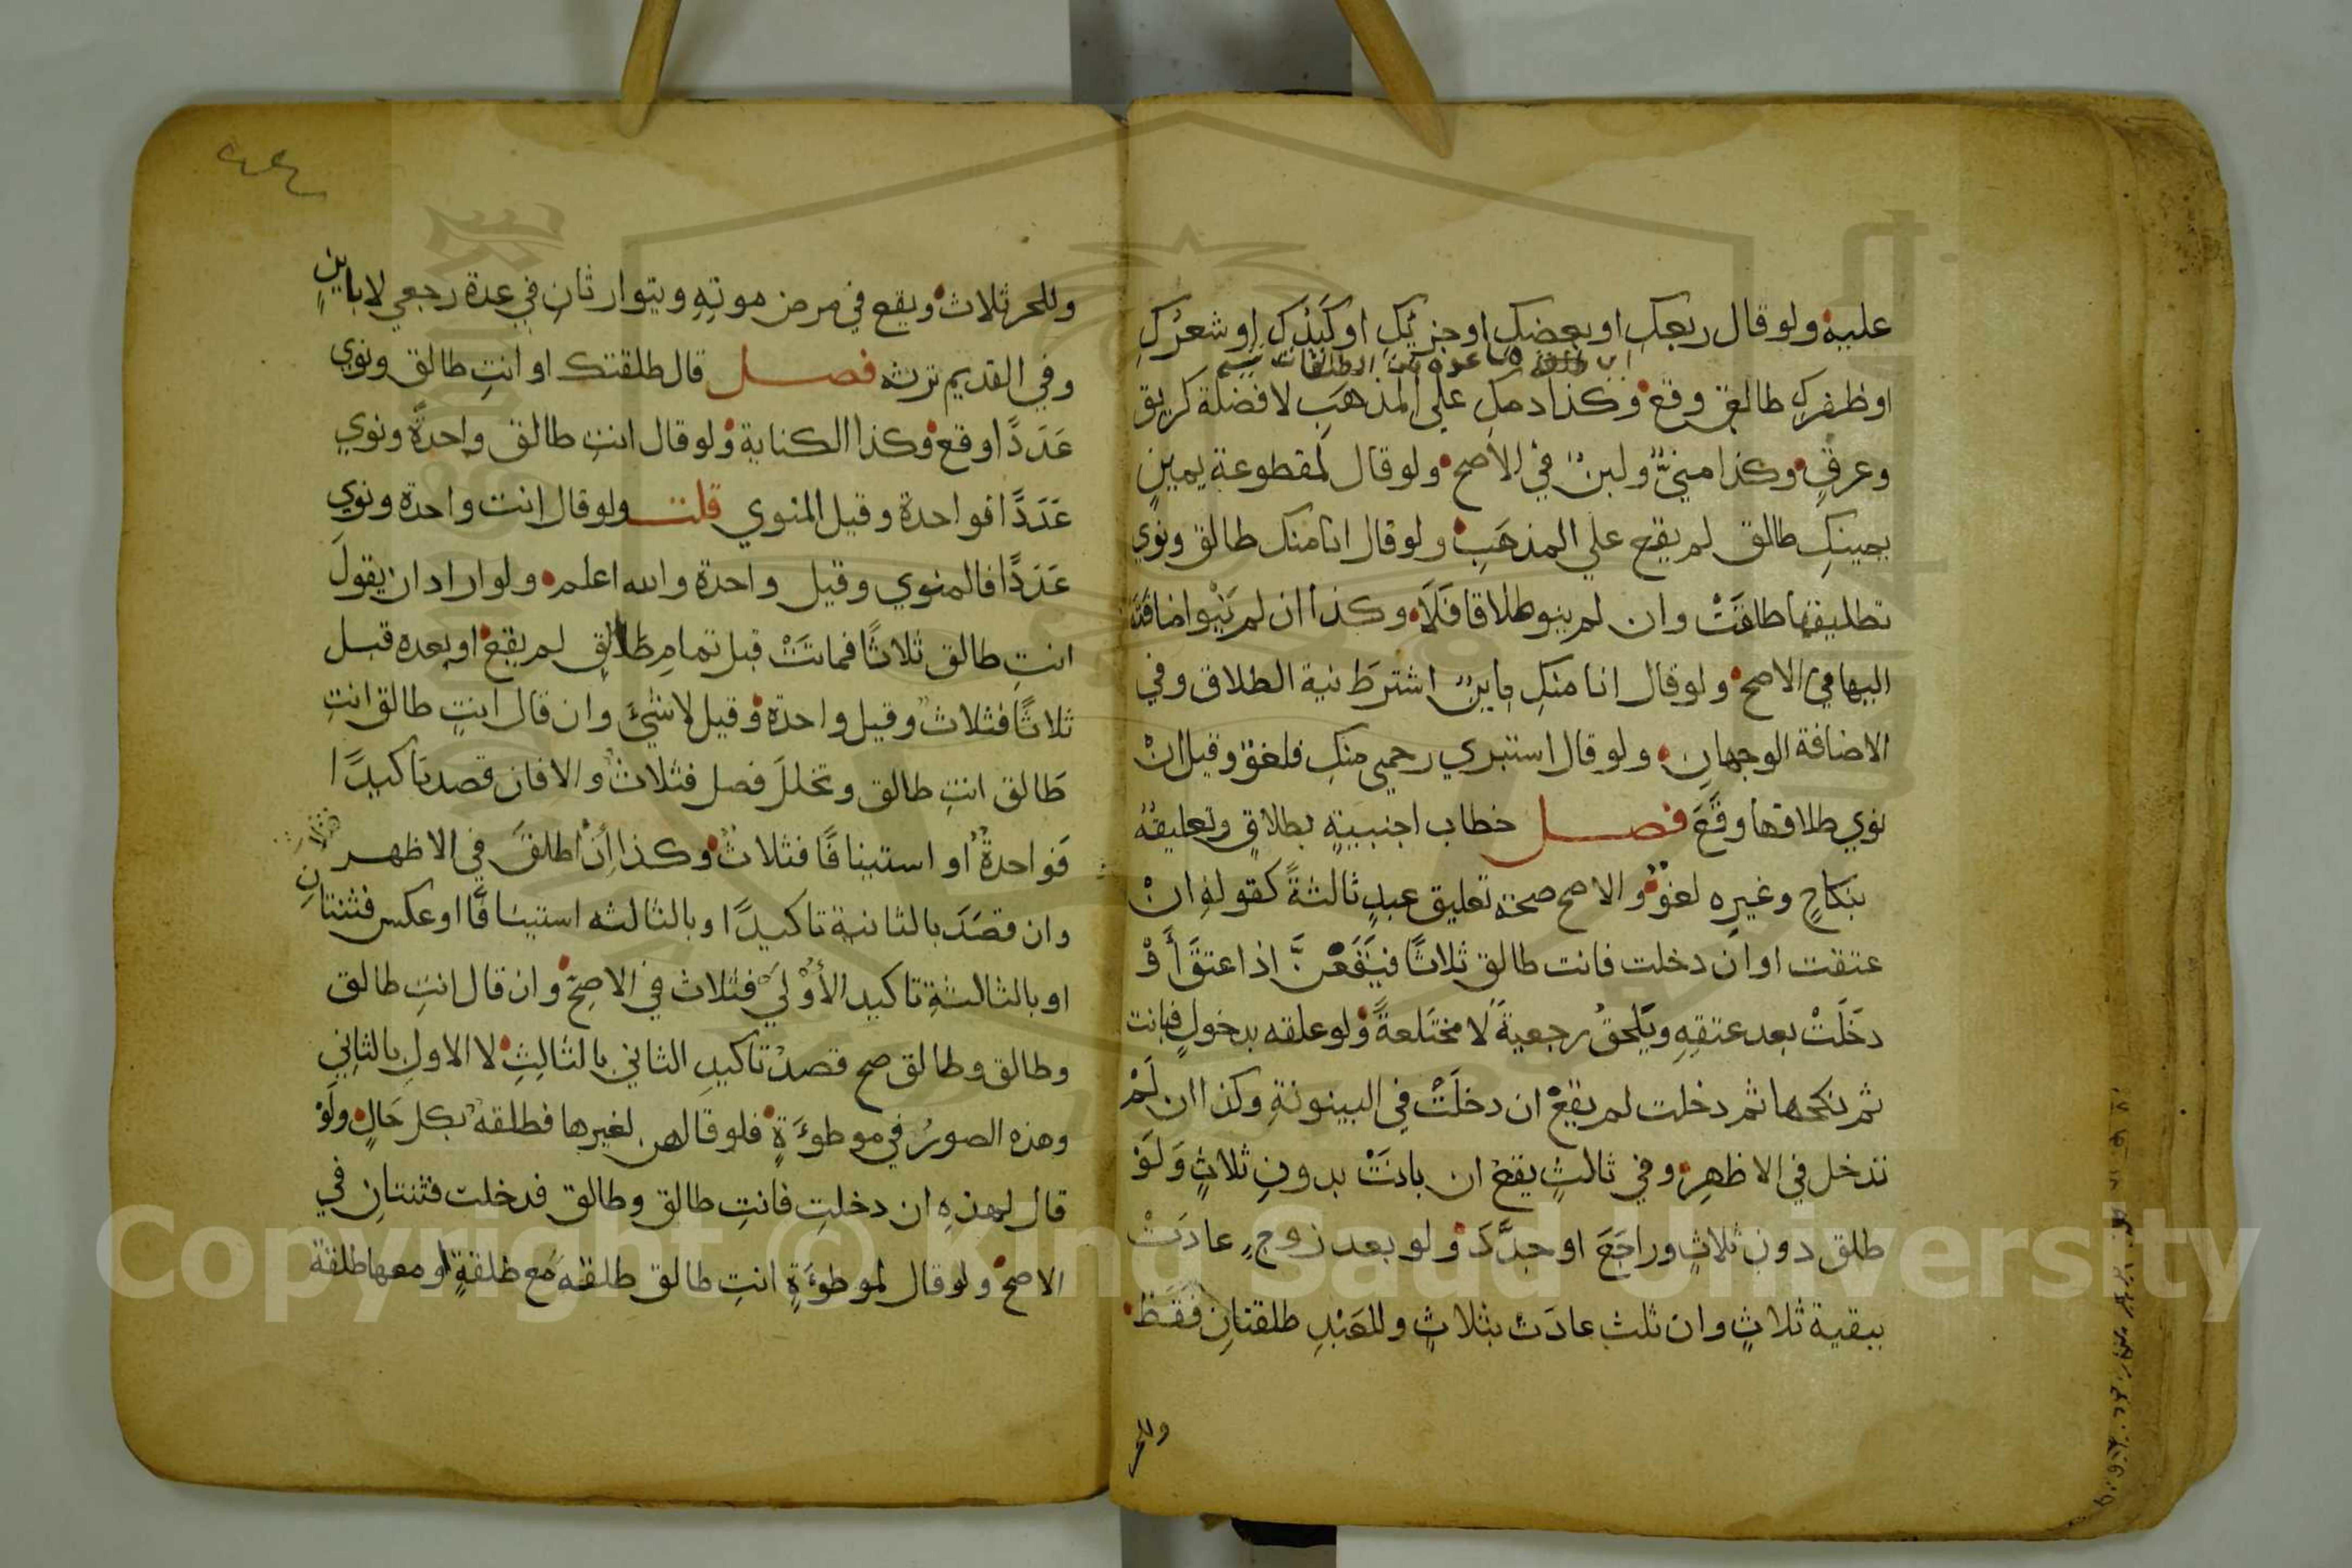 عليه ولو قال ربعكِ او بعضكِ او جزئكِ او كَبَدكِ او شعرُكِ
او ظفركِ طالق وقع وكذا دمكِ علي المذهَبِ لا فضلة كريق
وعرقٍ وكذا منيٌّ ولبنٌ في الاصح ولو قال لمقطوعة يمينٍ
يمينكِ طالق لم يقع علي المذهَبِ ولو قال انا منك طالق ونوي
تطليقها طلقَتْ وان لم ينو طلاقا فَلَا وكذا ان لم يَنْو اضافَتَه
اليها في الاصح ولو قال انا منكِ باينٌ اشترطَ نية الطلاق وفي
الاضافة الوجهانِ ولو قال استبري رحمي منكِ فلغوٌ وقيل انْ
نوي طلاقها وقَعَ فصل خطاب اجنبيةٍ بطلاقٍ وتعليقُهُ
بنكاحٍ وغيرِه لغوٌ والاصح صحة تعليق عبدٍ ثالثةً كقولهِ انْ
عتقت او ان دخلت فانت طالق ثلاثًا فيَقَعْنَ اذا عتقَ أَوْ
دخَلَتْ بعد عتقِهِ ويَلحقُ رجعيةً لا مختَلعةً ولو علقه بدخولٍ فبانت
ثم نكحها ثم دخلت لم يقعْ ان دخلَتْ في البينونةِ وكذا ان لَمْ
تدخل في الاظهرِ وفي ثالثٍ يقعُ ان بانَتْ بدونِ ثلاثٍ وَلَوْ
طلق دون ثلاثٍ وراجَعَ او جدَّدَ ولو بعد زوجٍ عادَتْ
ببقية ثلاثٍ وان ثلث عادَت بثلاثٍ وللعَبْدِ طلقتانِ فقَط
وللحر
وللحر ثلاث ويقع في مرض موتِهِ ويتوارثانِ في عدة رجعي لا باينٍ
وفي القديم ترثه فصل قال طلقتك او انتِ طالق ونوي
عَدَدًا وقع وكذا الكناية ولو قال انتِ طالق واحدةً ونوي
عَدَدًا فواحدة وقيل المنوي قلت ولو قال انت واحدة ونوي
عَدَدًا فالمنوي وقيل واحدة والله اعلم ولو اراد ان يقولَ
انتِ طالق ثلاثًا فماتَتْ قبل تمامِ طَالِق لم يقع او بعده قبل
ثلاثًا فثلاثٌ وقيل واحدة وقيل لا شئَ وان قال انتِ طالق انتِ
طَالق انتِ طالق وتخللَ فصل فثلاثٌ والا فان قصد تاكيدًا
فَواحدةٌ او استينافًا فثلاثٌ وكذا إن اطلقَ في الاظهر
وان قصَدَ بالثانية تاكيدًا وبالثالثه استينافًا او عكس فثنتانِ
او بالثالثةِ تاكيد الأوْلَيْ فثلاث في الاصحِّ وان قال انتِ طالق
وطالق وطالق صح قصدُ تاكيدِ الثاني بالثالِثِ لا الاولِ بالثانِي
وهذه الصورُ في موطوءَةٍ فلو قالهن لغيرها فطلقهٌ بكل حَالٍ ولَوْ
قال لهذهِ ان دخلتِ فانتِ طالق وطالق فدخلت فثنتانِ في
الاصح ولو قال لموطوءَةٍ انتِ طالق طلقه مَع طلقةٍ او معها طلقة
Copyright © King Saud University